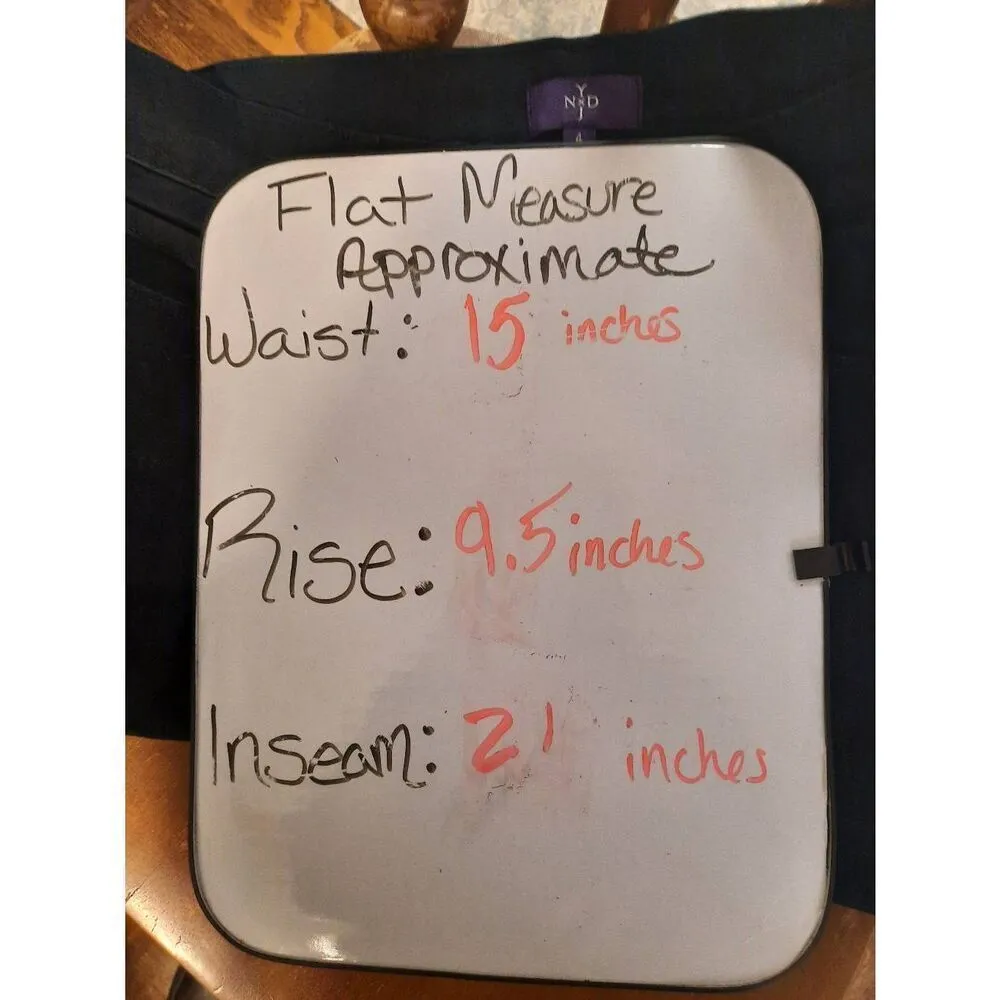 NYDJ
4
Flat Measure
Approximate
Waist: 15 inches
Rise: 9.5 inches
Inseam: 21 inches